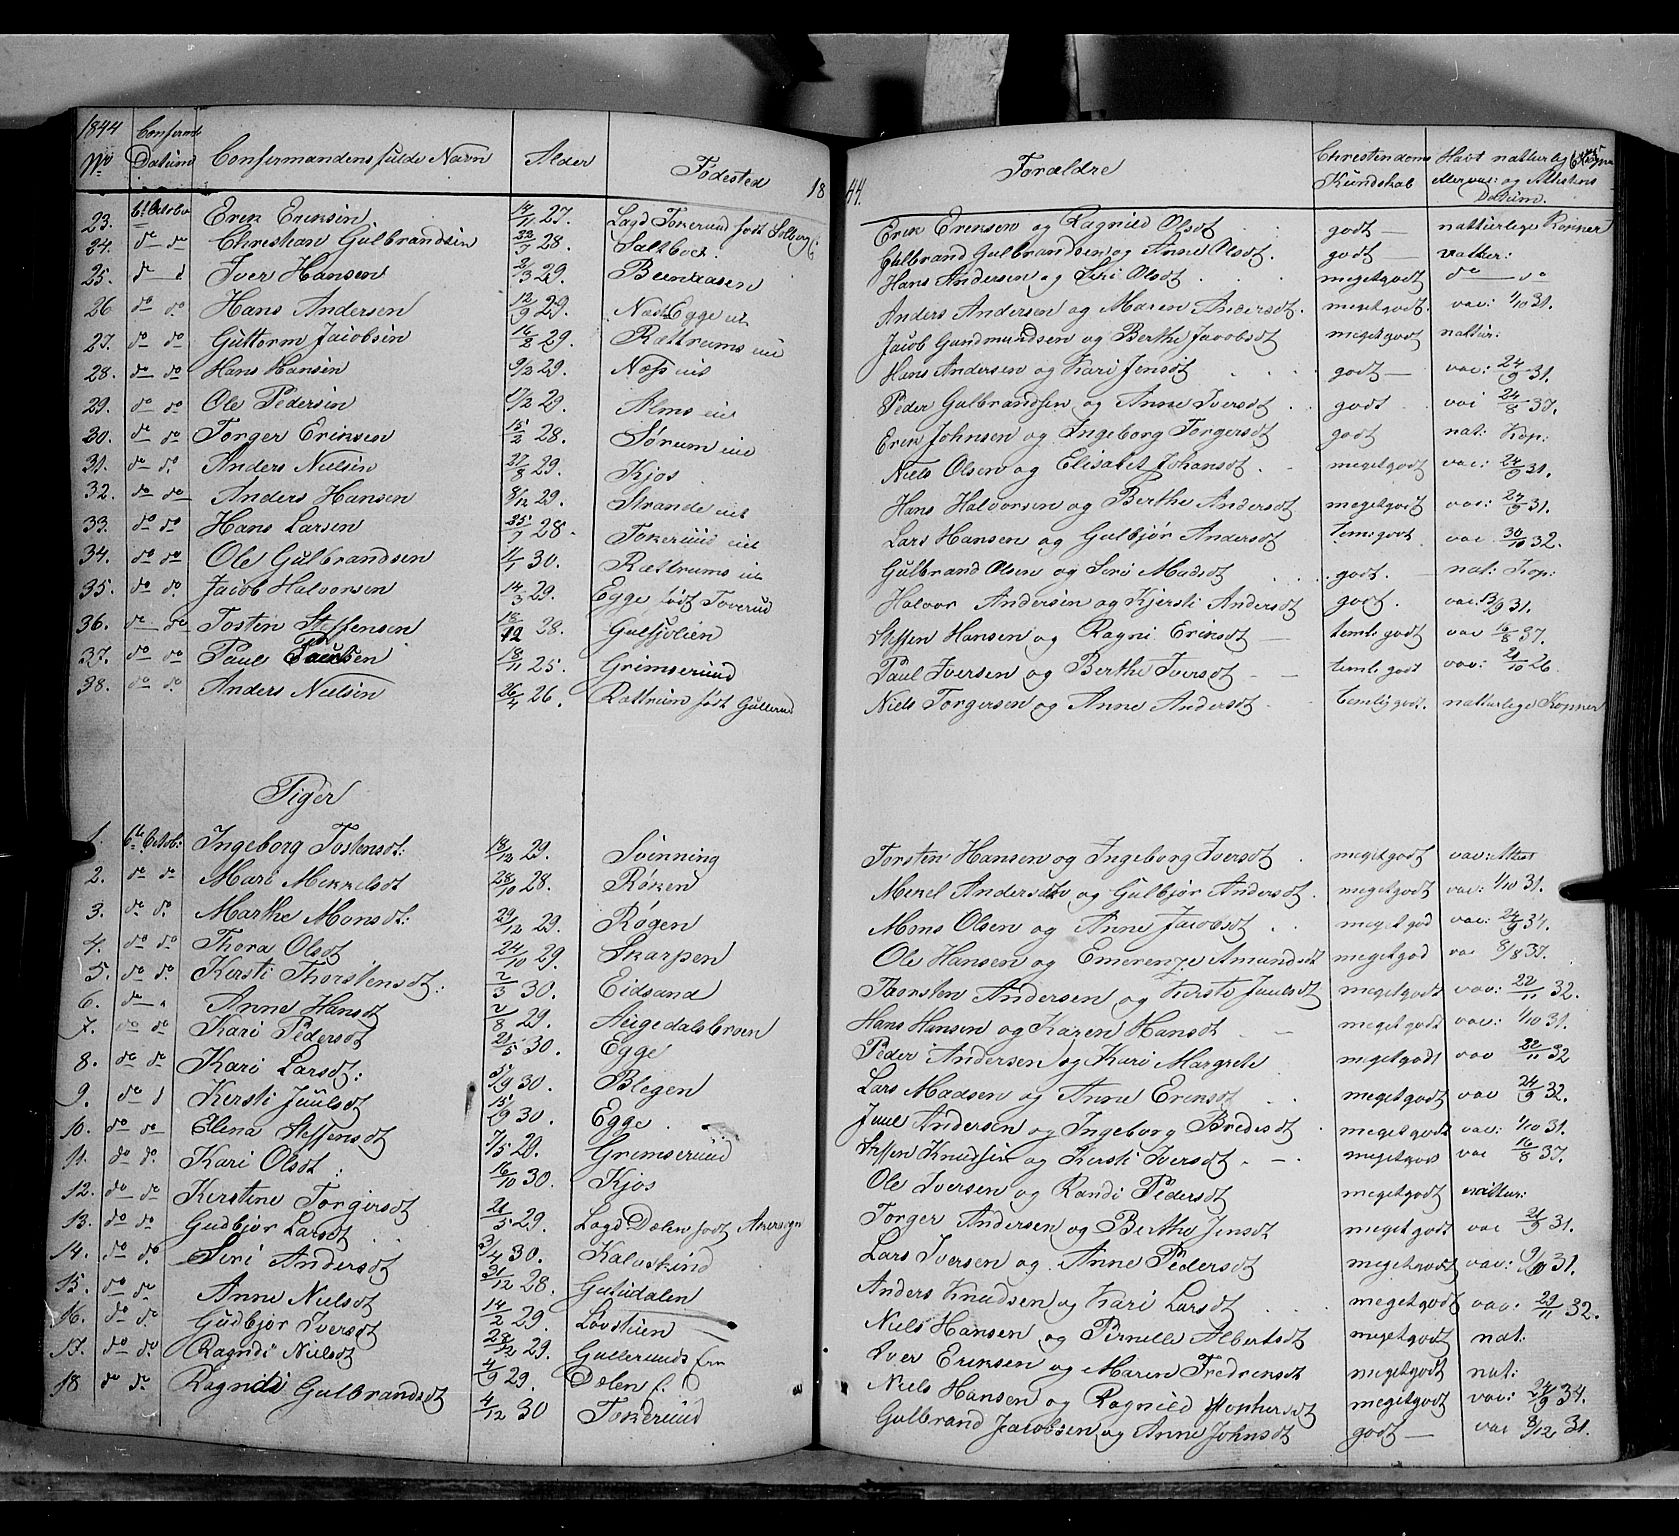 1844 Confirmd
No Datum Confirmandens fulde Navn Alder Fødested 18 44. Forældre Christendoms Kundskab Havt naturlig Kopper eller vac: og Attestens Datum.
23. 6t Octobr Erik Eriksen 14/11 27. Lagd Tokerud født Solberg Erik Eriksen og Ragnild Olsdt godt naturlige Kopper
24. do do Christian Gulbrandsen 22/7 28. Saltboet Gulbrand Gulbrandsen og Anne Olsdt. godt natur:
25. do d Iver Hansen 2/3 29. Benkaasen Hans Andersen og Siri Olsdt megetgodt do do
26 do do Hans Andersen 12/9 29. Næs Egge eie Anders Andersen og Maren Andersdt. megetgodt vac: 1/10 31.
27. do do Guttorm Jacobsen 16/8 29. Rættrums eie Jacob Gundmundsen og Berthe Jacobsdt megetgodt natur:
28. do do Hans Hansen 9/2 29. Næss eie Hans Andersen og Kari Jensdt godt vac: 24/9 31.
29. do do Ole Pedersen 17/2 29. Alms eie Peder Gulbrandsen og Anne Iversdt godt vac 24/8 37.
30. do do Torger Eriksen 15/2 28. Sørum eie Erik Johnsen og Ingeborg Torgersdt godt nat: Kop:
31. do do Anders Nielsen 27/8 29. Kjos Niels Olsen og Elisabet Johansdt megetgodt vac: 24/9 31.
32. do do Anders Hansen 8/12 29. Strande eie Hans Halvorsen og Berthe Andersdt megetgodt vac: 24/9 31.
33. do do Hans Larsen 25/7 28. Tokerud eie Lars Hansen og Gulbjør Andersdt temi:godt vac 30/10 32.
34. do do Ole Gulbrandsen 11/1 30. Rættrums eie Gulbrand Olsen og Siri Madsdt godt. nat: Kop:
35. do do Jacob Halvorsen 14/3 29. Egge født Toverud Halvor Andersen og Kjersti Andersdt godt. vac: 13/9 31.
36. do do Tosten Steffensen 18/12 28. Gulsjølien Steffen Hansen og Ragni Eriksdt temli:godt vac 16/8 37.
37. do do Paul Paulsen 18/11 25. Grimserud Paul Iversen og Berthe Iversdt temli godt vac: 21/10 26
38. do do Anders Nielsen 26/4 26. Rættrum født Gullerud Niels Torgersen og Anne Andersdt temligodt. naturlige Kopper
Piger
1. 6te Octob: Ingeborg Tostensdt: 18/12 29. Svenning Torsten Hansen og Ingeborg Iversdt megetgodt vac: Attest
2. do do Mari Mekkelsdt 28/10 28. Røken Mekel Andersen og Gulbjør Andersdt. megetgodt vac: 1/10 31.
3. do do Marthe Monsdt: 29/12 29. Røgen Mons Olsen og Anne Jacobsdt megetgod vac: 24/9 34.
4. do do Thora Olsdt 24/10 29. Skarpen Ole Hansen og Emerenze Amundsdt megetgod vac 8/8 37.
5. do do Kersti Thorstensdt: 2/3 30. Eidsand Taorsten Andersen og Kirsti Juulsdt megetgodt vac: 22/11 32.
6. do Anne Hansdt 2/8 29. Augedalsbroen Hans Hansen og Karen Hansdt megetgodt vac: 1/10 31.
7. do do Kari Pedersdt 21/5 30. Egge Peder Andersen og Kari Margrete megetgodt vac 22/11 32
8. do do Kari Larsdt: 5/29 30. Blegen Lars Madsen og Anne Eriksdt megetgodt vac 24/9 32.
9. do d Kersti Juulsdt 15/29 30. Egge Juul Andersen og Ingeborg Bredesdt megetgodt vac: 1/10 31.
10. do do Elena Steffensdt 7/5 29. Grimserud Steffen Knudsen og Kersti Iversdt megetgodt vac 16/8 37.
11. do do Kari Olsdt: 16/10 30. Kjos Ole Iversen og Randi Pedersdt megetgodt natur:
12. do do Kerstine Torgersdt 21/5 29. Lagd Dælen født Torger Andersen og Berthe Jensdt megetgodt vac 21/9 31.
13. do do Gudbjør Larsdt 3/4 30. Kalvskind Lars Iversen og Anne Pedersdt megetgodt vac: 9/10 31.
14. do do Siri Andersdt 31/12 28. Gutudalen Anders Knudsen og Kari Larsdt megetgodt vac: 29/11 32.
15. do do Anne Nielsdt 14/2 29. Lovstuen Niels Hansen og Pernille Albertsdt megetgodt nat:
16. do do Gudbjør Iversdt 28/12 29. Gullerunds Iver Eriksen og Maren Fredriksdt megetgodt nat:
17. do do Ragndi Nielsdt 4/9 29. Dælen f. Niels Hansen og Ragnild megetgodt vac: 24/9 34.
18 do do Ragndi Gulbrandsdt 4/12 30 Tokerud Gulbrand Jacobsen og Anne Johnsdt godt vac 8/12 31.